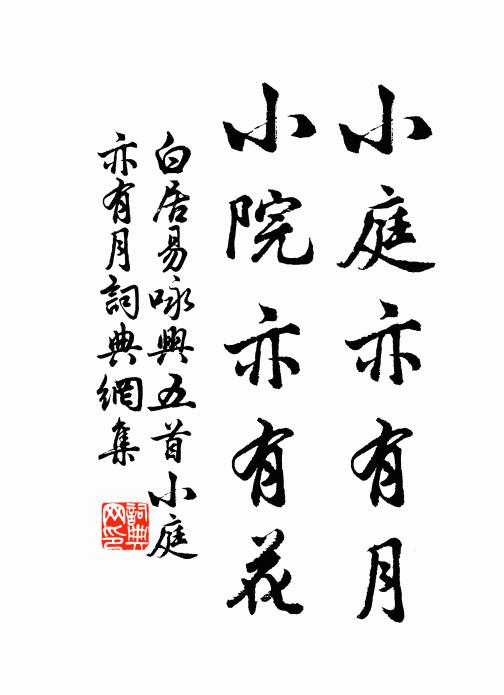 小庭亦有月
小院亦有花
白居易咏興五首小庭
亦有月詞典網集
詞典
网印